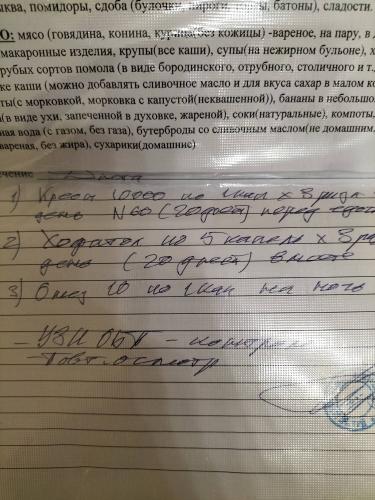 ыква, помидоры, сдоба (булочки, пироги, торты, батоны), сладости.
О: мясо (говядина, конина, курица(без кожицы) -вареное, на пару, в д
макаронные изделия, крупы(все каши), супы(на нежирном бульоне), х
рубых сортов помола (в виде бородинского, отрубного, столичного и т.
ке каши (можно добавлять сливочное масло и для вкуса сахар в малом ко
ты(с морковкой, морковка с капустой(неквашенной)), бананы в небольшо
а(в виде ухи, запеченной в духовке, жареной), соки(натуральные), компоты,
ная вода (с газом, без газа), бутерброды со сливочным маслом(не домашним,
вареная, без жира), сухарики(домашние)
ечение Диета
1) Креон 10000 по 1 кап х 3 раза
день N60 (20 дней) перед едой
2) Хофитол по 5 капель х 3 ра
день (20 дней) вместе
3) Омез 10 по 1 кап на ночь
- УЗИ ОБП - контроль
Повт. осмотр